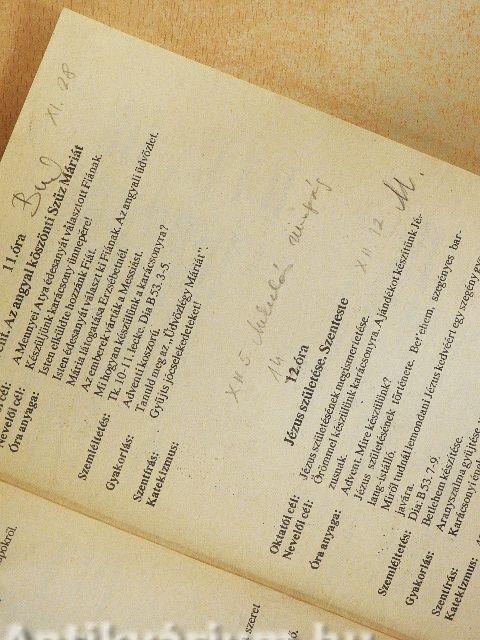 XI. 28
11. óra
Az angyal köszönti Szűz Máriát
A Mennyei Atya édesanyát választott Fiának.
Készüljünk karácsony ünnepére!
Isten elküldte hozzánk Fiát.
Isten édesanyát választ ki Fiának. Az angyali üdvözlet.
Mária látogatása Erzsébetnél.
Az emberek várták a Messiást.
Mi hogyan készülünk a karácsonyra?
Szemléltetés: Tk. 10-11. lecke. Dia B 53. 3-5.
Gyakorlás: Adventi koszorú.
Szentírás: Tanuld meg az „Üdvözlégy Máriát”.
Katekizmus: Gyűjts jócselekedeteket!
Nevelői cél:
Óra anyaga:
XII. 5
14
XII. 12 M.
12. óra
Jézus születése. Szenteste
Oktatói cél: Jézus születésének megismertetése.
Nevelői cél: Örömmel készülünk karácsonyra. Ajándékot készítünk Jé-
zusnak.
Óra anyaga: Advent. Mire készülünk?
Jézus születésének története. Betlehem, szegényes bar-
lang-istálló.
Miről tudnál lemondani Jézus kedvéért egy szegény
javára.
Szemléltetés: Dia: B 53. 7-9.
Gyakorlás: Betlehem készítése.
Szentírás: Aranyszalma gyűjtése,
Katekizmus: Karácsonyi
szeret
Antikvárium.hu